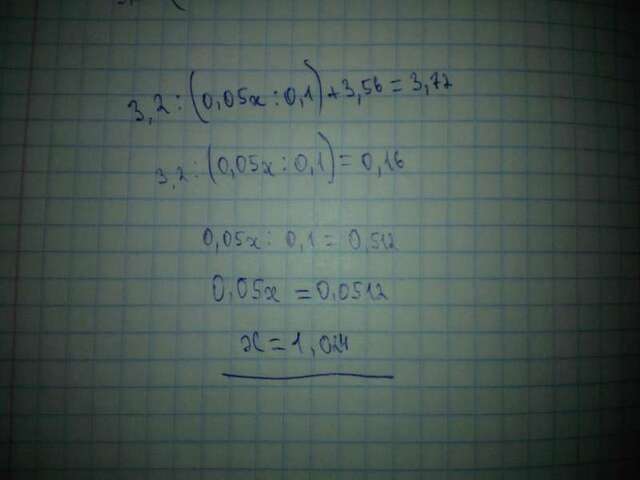 3,2 : (0,05x : 0,1) + 3,56 = 3,72
3,2 : (0,05x : 0,1) = 0,16
0,05x : 0,1 = 0,512
0,05x = 0,0512
x = 1,024